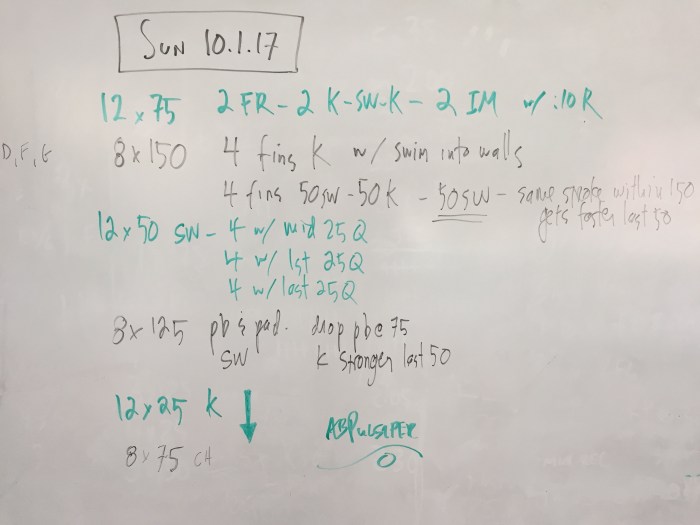 SUN 10.1.17
12 x 75 2 FR - 2 K-SW-K - 2 IM w/ :10 R
D, F, G 8 x 150 4 fins K w/ swim into walls
4 fins 50sw - 50K - 50sw - same stroke within 150
gets faster last 50
12 x 50 SW - 4 w/ mid 25 Q
4 w/ 1st 25Q
4 w/ last 25Q
8 x 125 pb & pad. drop pb @ 75
SW K stronger last 50
12 x 25 K ↓
8 x 75 CH